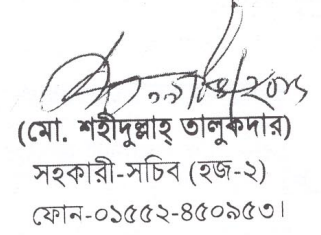 (মো. শহীদুল্লাহ্ তালুকদার)
সহকারী-সচিব (হজ-২)
ফোন-০১৫৫২-৪৫০৯৫৩।